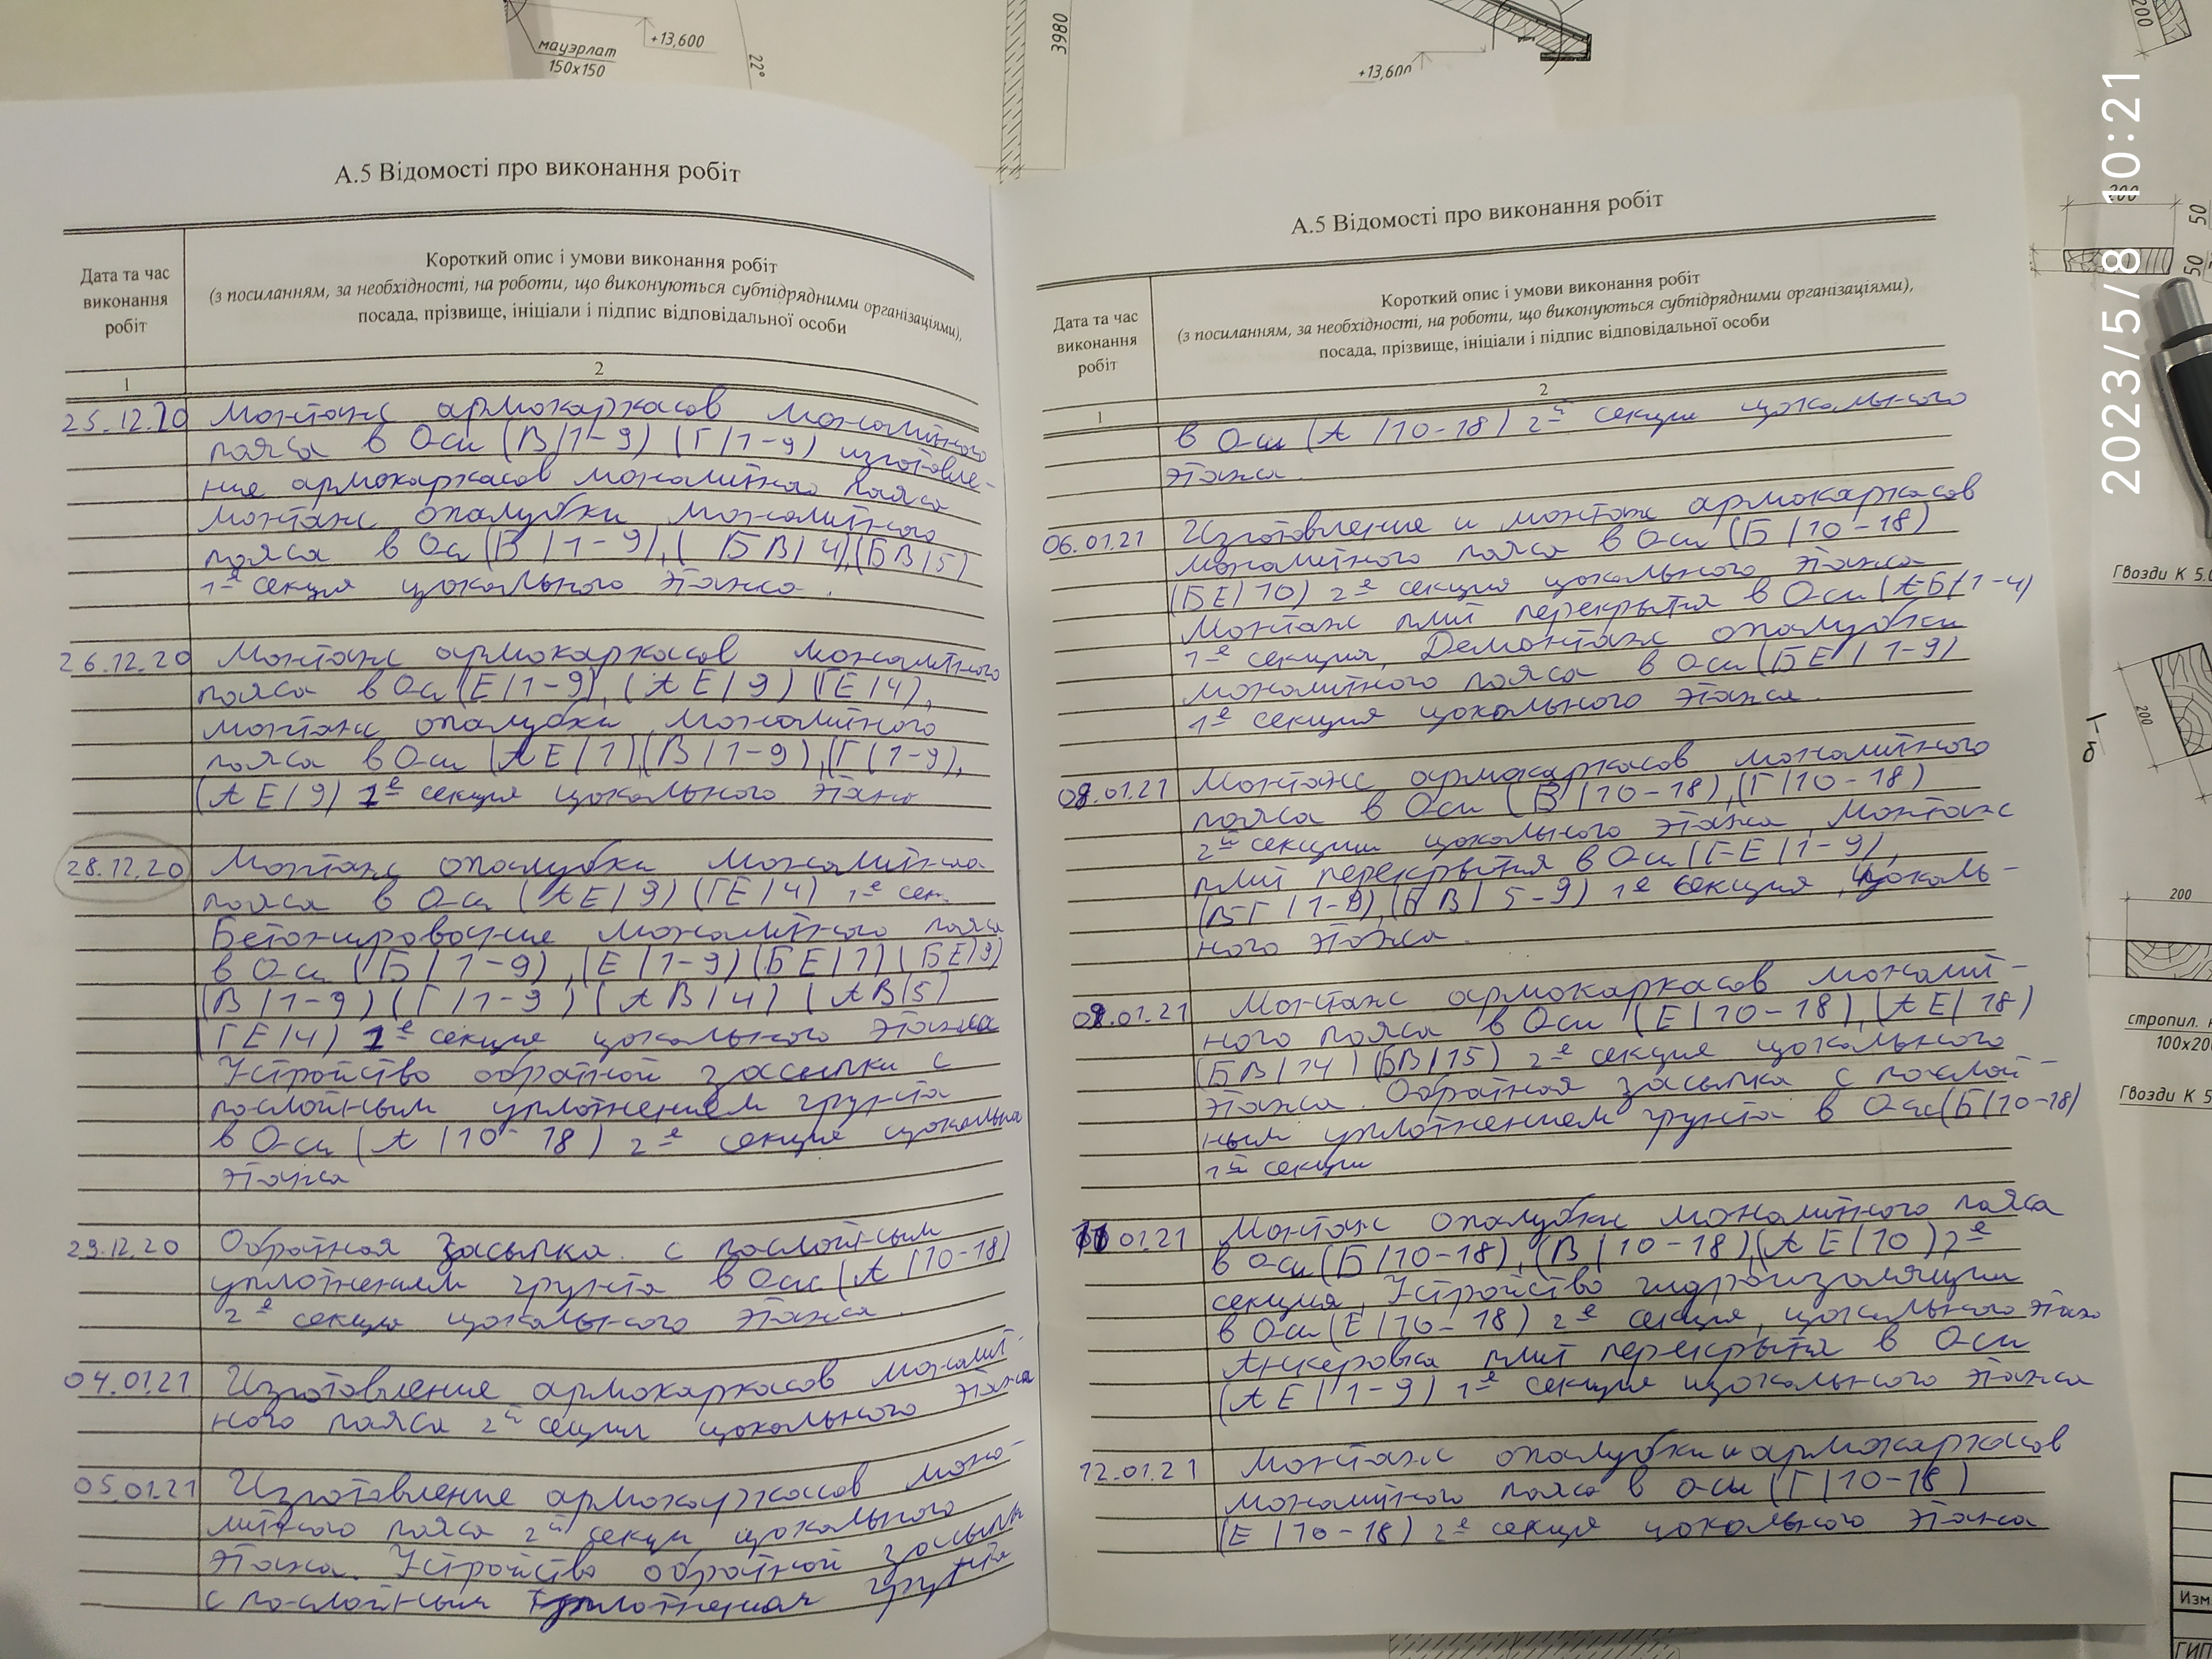 мауэрлат
150х150
+13,600
22°
3980
+13,600
200
А.5 Відомості про виконання робіт
Дата та час
виконання
робіт
Короткий опис і умови виконання робіт
(з посиланням, за необхідності, на роботи, що виконуються субпідрядними організаціями),
посада, прізвище, ініціали і підпис відповідальної особи
1
2
25.12.20 Монтаж армокаркасов монолитного
пояса в Оси (В/1-9) (Г/1-9) изготовле-
ние армокаркасов монолитного пояса
монтаж опалубки монолитного
пояса в Оси (В/1-9), (БВ/4), (БВ/5)
1е секция цокольного этажа.
26.12.20 Монтаж армокаркасов монолитного
пояса в Оси (Е/1-9), (АЕ/9) (ГЕ/4),
монтаж опалубки монолитного
пояса в Оси (АЕ/1) (В/1-9), (Г/1-9),
(АЕ/9) 1е секция цокольного этажа
28.12.20 Монтаж опалубки монолитного
пояса в Оси (АЕ/9) (ГЕ/4) 1е сек.
Бетонировочние монолитного пояса
в Оси (Б/1-9), (Е/1-9) (БЕ/1) (БЕ/9)
(В/1-9) (Г/1-9) (АВ/4) (АВ/5)
(ГЕ/4) 1е секция цокольного этажа
Устройство обратной засыпки с
послойным уплотнением грунта
в Оси (А/10-18) 2е секция цокольна
этажа
29.12.20 Обратная засыпка с послойным
уплотнением грунта в Оси (А/10-18)
2е секция цокольного этажа.
04.01.21 Изготовление армокаркасов монолит-
ного пояса 2й сеции цокольного этажа
05.01.21 Изготовление армокаркасов моно-
литного пояса 2й секци цокольного
этажа. Устройство обратной засыпки
с послойным уплотненная грунта
А.5 Відомості про виконання робіт
Дата та час
виконання
робіт
Короткий опис і умови виконання робіт
(з посиланням, за необхідності, на роботи, що виконуються субпідрядними організаціями),
посада, прізвище, ініціали і підпис відповідальної особи
1
2
в Оси (А/10-18) 2й секции цокольного
этажа.
06.01.21 Изготовление и монтаж армокаркасов
монолитного пояса в Оси (Б/10-18)
(БЕ/10) 2е секция цокольного этажа
Монтаж плит перекрытя в Оси (АБ/1-4)
1е секция, Демонтаж опалубки
монолитного пояса в Оси (БЕ/1-9)
1е секция цокольного этажа.
08.01.21 Монтаж армокаркасов монолитного
пояса в Оси (В/10-18), (Г/10-18)
2й секции цокольного этажа, Монтаж
плит перекрытя в Оси (ГЕ/1-9),
(ВГ/1-9), (БВ/5-9) 1е секция, цоколь-
ного этажа.
09.01.21 Монтаж армокаркасов монолит-
ного пояса в Оси (Е/10-18), (АЕ/18)
(БВ/14) (БВ/15) 2е секция цокольного
этажа. Обратная засыпка с послой-
ным уплотнением грунта в Оси (Б/10-18)
1й секции
11.01.21 Монтаж опалубки монолитного пояса
в Оси (Б/10-18), (В/10-18), (АЕ/10) 2е
секция, Устройство гидроизоляции
в Оси (Е/10-18) 2е секция, цокольного этажа
Анкеровка плит перекрытя в Оси
(АЕ/1-9) 1е секция цокольного этажа
12.01.21 Монтаж опалубки и армокаркасов
монолитного пояса в оси (Г/10-18)
(Е/10-18) 2е секция цокольного этажа
2023/5/8 10:21
200
50
50
Гвозди К 5.
200
б-1
200
стропил. н
100х20
Гвозди К 5
Изм
ГИП